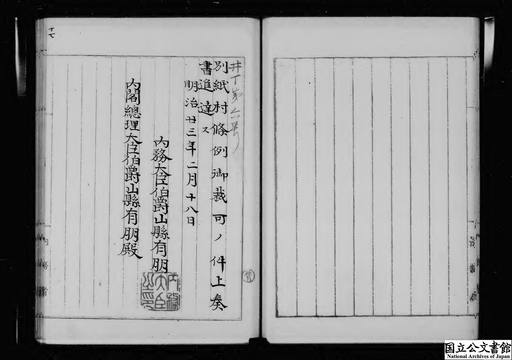 別紙村條例御裁可ノ件上奏
書進達ス
明治廿三年二月十八日
內務大臣伯爵山縣有朋
內閣總理大臣伯爵山縣有朋殿
国立公文書館
National Archives of Japan